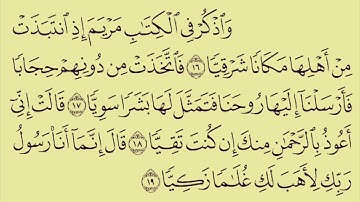 وَاذْكُرْ فِي الْكِتَابِ مَرْيَمَ إِذِ انْتَبَذَتْ
مِنْ أَهْلِهَا مَكَانًا شَرْقِيًّا ١٦ فَاتَّخَذَتْ مِن دُونِهِمْ حِجَابًا
فَأَرْسَلْنَا إِلَيْهَا رُوحَنَا فَتَمَثَّلَ لَهَا بَشَرًا سَوِيًّا ١٧ قَالَتْ إِنِّي
أَعُوذُ بِالرَّحْمَٰنِ مِنكَ إِن كُنتَ تَقِيًّا ١٨ قَالَ إِنَّمَا أَنَا رَسُولُ
رَبِّكِ لِأَهَبَ لَكِ غُلَامًا زَكِيًّا ١٩